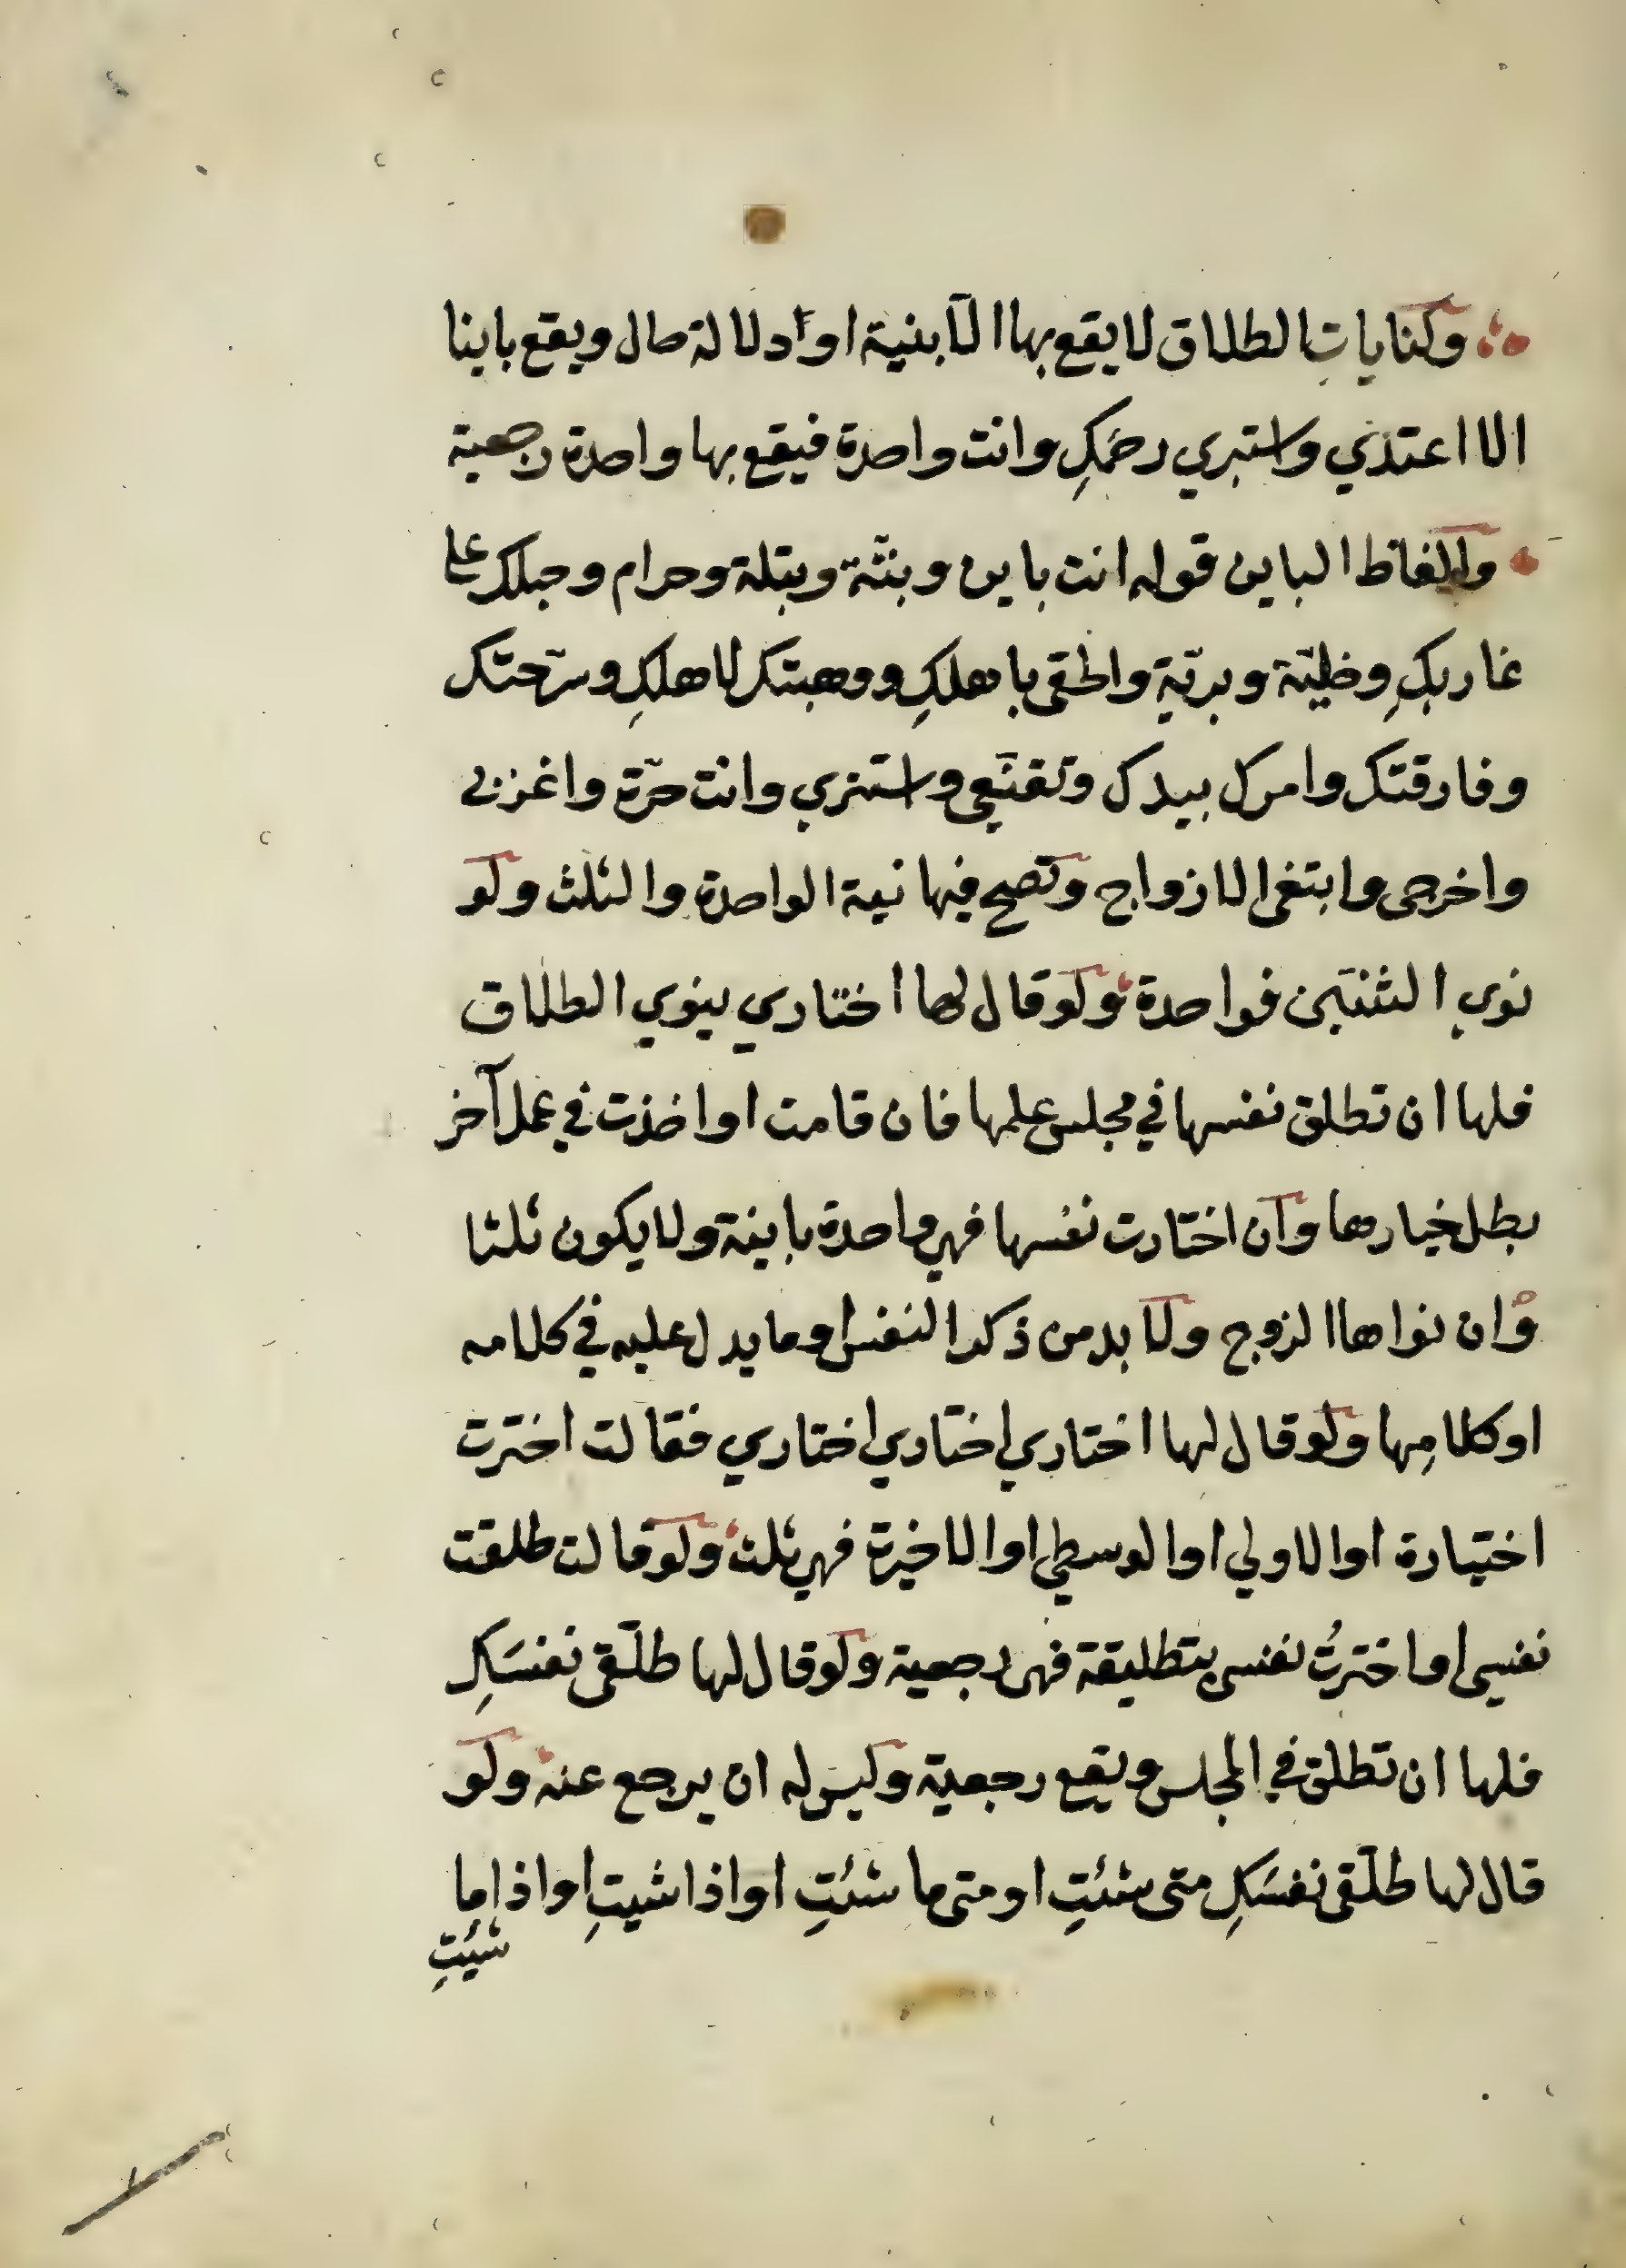 وكنايات الطلاق لا يقع بها الا بنية او دلالة حال ويقع باينا
الا اعتدي واستبري رحمكِ وانت واحدة فيقع بها واحدة رجعية
والفاظ الباين قوله انت باين وبتّة وبتلة وحرام وحبلك على
غاربكِ وخليّة وبريّة والحقى باهلكِ ووهبتك لاهلكِ وسرّحتك
وفارقتك وامرك بيدك وتقنّعي واستتري وانت حرّة واغربى
واخرجى وابتغى الازواج وتصح فيها نية الواحدة والثلث ولو
نوي الثنتين فواحدة ولو قال لها اختاري ينوي الطلاق
فلها ان تطلق نفسها في مجلس علمها فان قامت او اخذت في عمل آخر
بطل خيارها وان اختارت نفسها فهي واحدة باينة ولا يكون ثلثا
وان نواها الزوج ولا بد من ذكر النفس او ما يدل عليه في كلامه
او كلامِها ولو قال لها اختاري اختاري اختاري فقالت اخترت
اختيارة او الاولي او الوسطي او الاخيرة فهي ثلث ولو قالت طلقت
نفسي او اخترتُ نفسى بتطليقة فهى رجعية ولو قال لها طلّقى نفسَكِ
فلها ان تطلق في المجلس ويقع رجعية وليس له ان يرجع عنه ولو
قال لها طلّقى نفسَكِ متى شئتِ او متى ما شئتِ او اذا شيتِ او اذا ما
شيئتِ